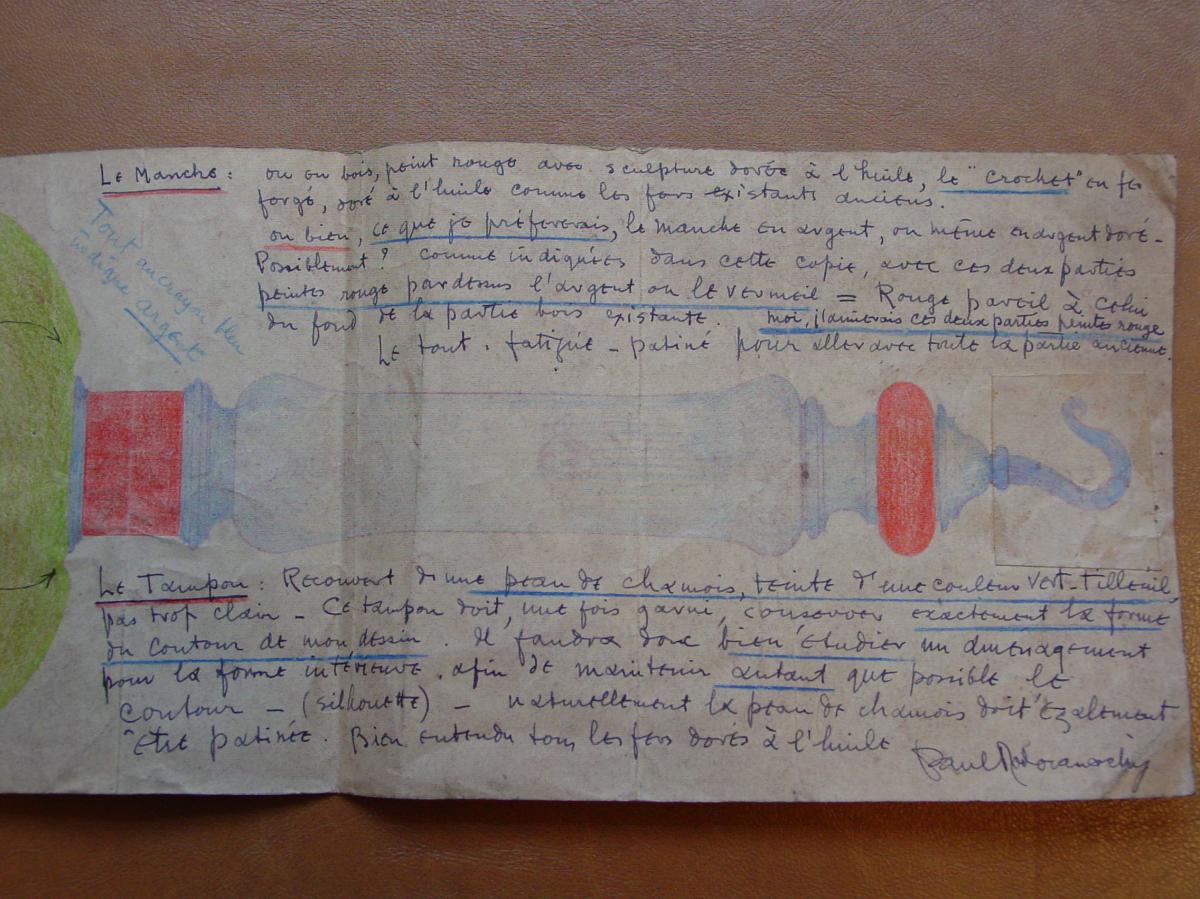 Le Manche : ou en bois, peint rouge avec sculpture dorée à l'huile, le "crochet" en fer
forgé, doré à l'huile comme les fers existants anciens.
ou bien, ce que je préfererais, le manche en argent, ou même en argent doré -
Possiblement ? comme indiquées dans cette copie, avec ces deux parties
peintes rouge pardessus l'argent ou le vermeil = Rouge pareil à celui
du fond de la partie bois existante. moi, j'aimerais ces deux parties peintes rouge
Le tout . fatigué - patiné pour aller avec toute la partie ancienne.
Tout au crayon bleu
indique argent
Le Tampon : Recouvert d'une peau de chamois, teinte d'une couleur vert-tilleuil,
pas trop clair - Ce tampon doit, une fois garni, conserver exactement la forme
du contour de mon dessin . Il faudra donc bien étudier un aménagement
pour la forme intérieure . afin de maintenir autant que possible le
contour - (silhouette) - naturellement la peau de chamois doit également
être patinée . Bien entendu tous les fers dorés à l'huile
Paul